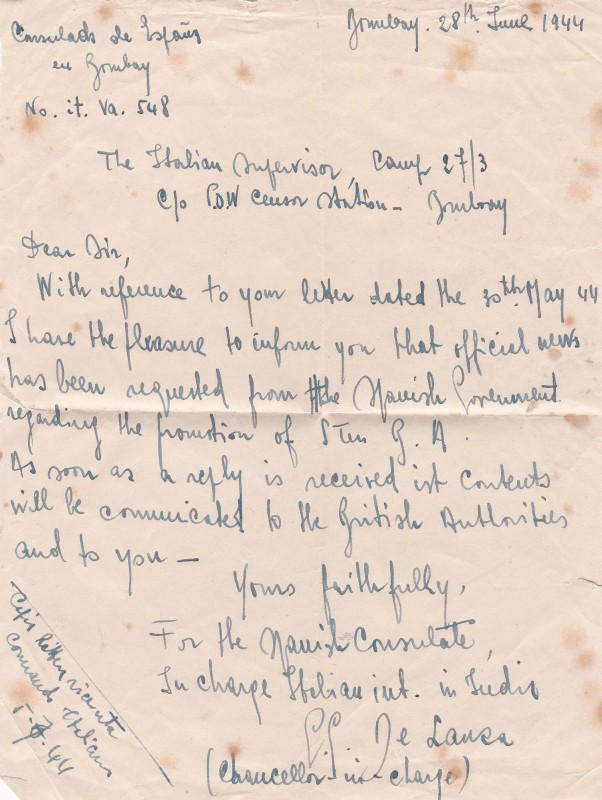 Consulado de España
Bombay. 28th. June 1944
en Bombay
No. it. Va. 548
The Italian Supervisor, Camp 27/3
c/o P.O.W Censor Station - Bombay
Dear Sir,
With reference to your letter dated the 30th. May 44
I have the pleasure to inform you that official news
has been requested from the Spanish Government
regarding the promotion of S.Ten G. A.
As soon as a reply is received ist contents
will be comunicated to the British Authorities
and to you -
Yours faithfully,
For the Spanish Consulate,
In charge Italian int. in India
De Lanza
(Chancellor-in-charge)
Copia lettera ricevuta
comando Italiano
44